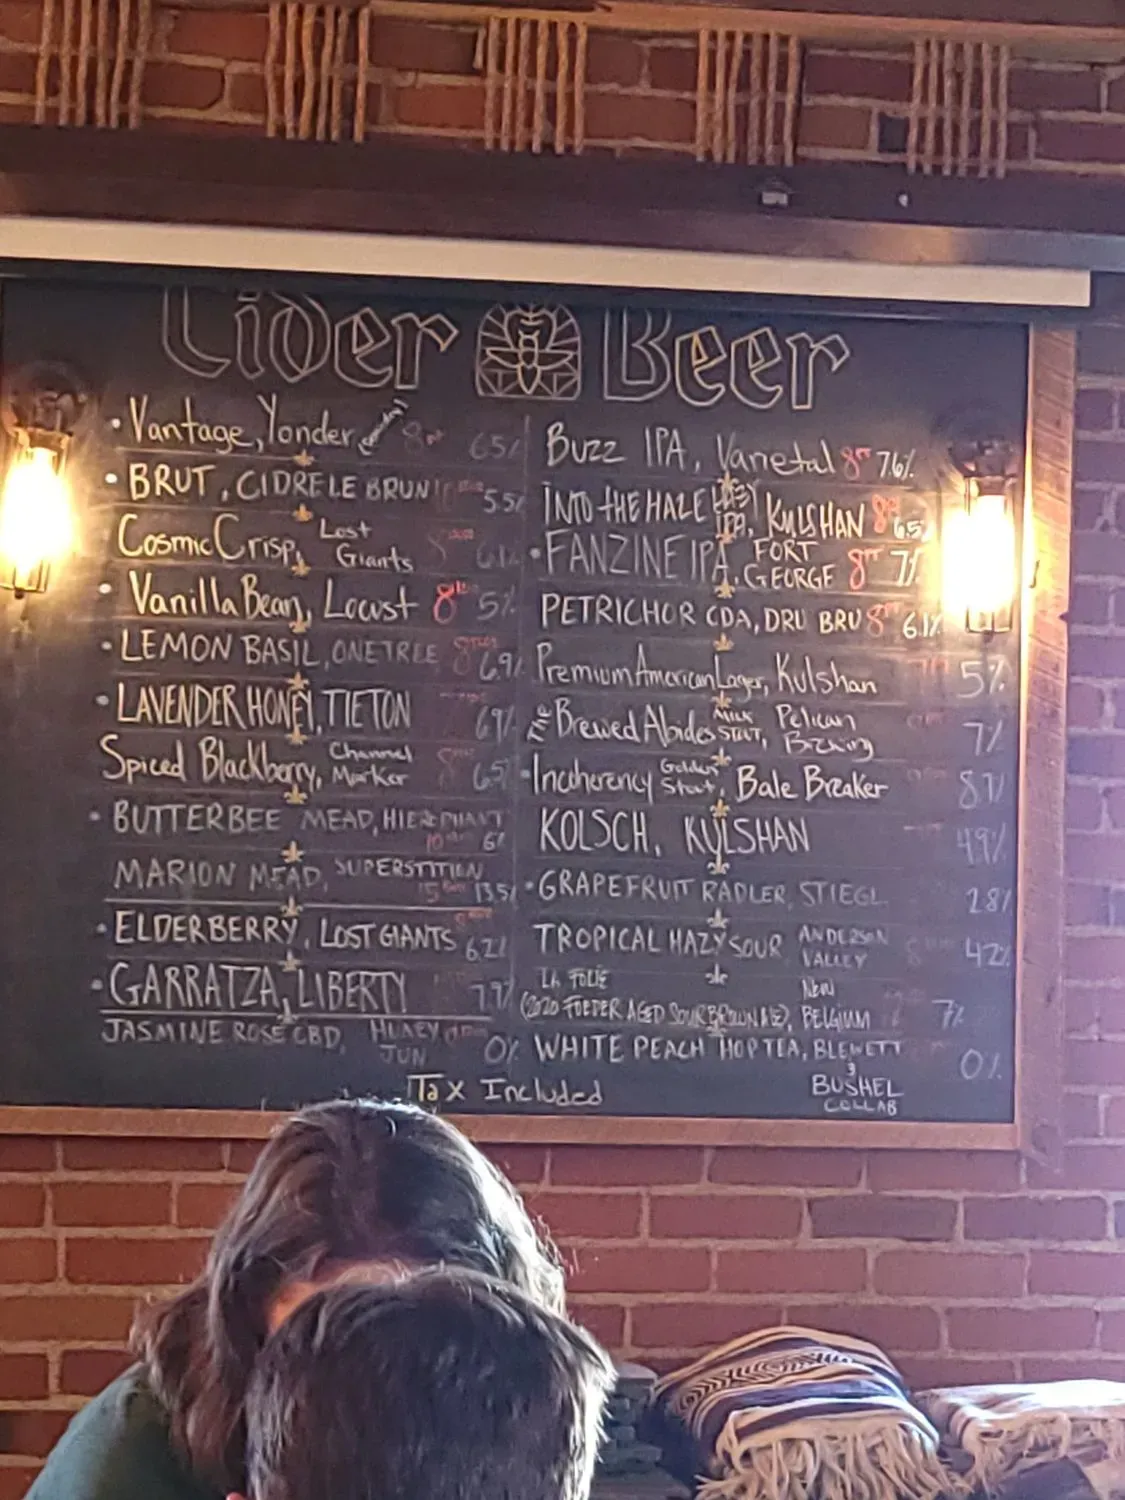 Cider Beer
Vantage, Yonder 6.5%
BRUT, CIDRE LE BRUN 5.5%
Cosmic Crisp, Lost Giants 6.1%
Vanilla Bean, Locust 8 5%
LEMON BASIL, ONE TREE 6.9%
LAVENDER HONEY, TIETON 6.9%
Spiced Blackberry, Channel Marker 6.5%
BUTTERBEE MEAD, HIEROPHANT 6%
MARION MEAD, SUPERSTITION 13.5%
ELDERBERRY, LOST GIANTS 6.2%
GARRATZA, LIBERTY
JASMINE ROSE CBD, JUN 0%
Buzz IPA, Varietal 8 7.6%
INTO THE HAZE HAZY IPA, KULSHAN 6.5%
FANZINE IPA, FORT GEORGE 8 7%
PETRICHOR CDA, DRU BRU 8 6.1%
Premium American Lager, Kulshan 5%
The Brewed Abides MILK STOUT, Pelican Brewing 7%
Incoherency Golden Stout, Bale Breaker 8.1%
KOLSCH, KULSHAN 4.9%
GRAPEFRUIT RADLER, STIEGL 2.8%
TROPICAL HAZY SOUR ANDERSON VALLEY 4.2%
LA FOLIE (2020 FOEDER AGED SOUR BROWN ALE), NEW BELGIUM 7%
WHITE PEACH HOP TEA, BLEWETT & BUSHEL COLLAB 0%
Tax Included